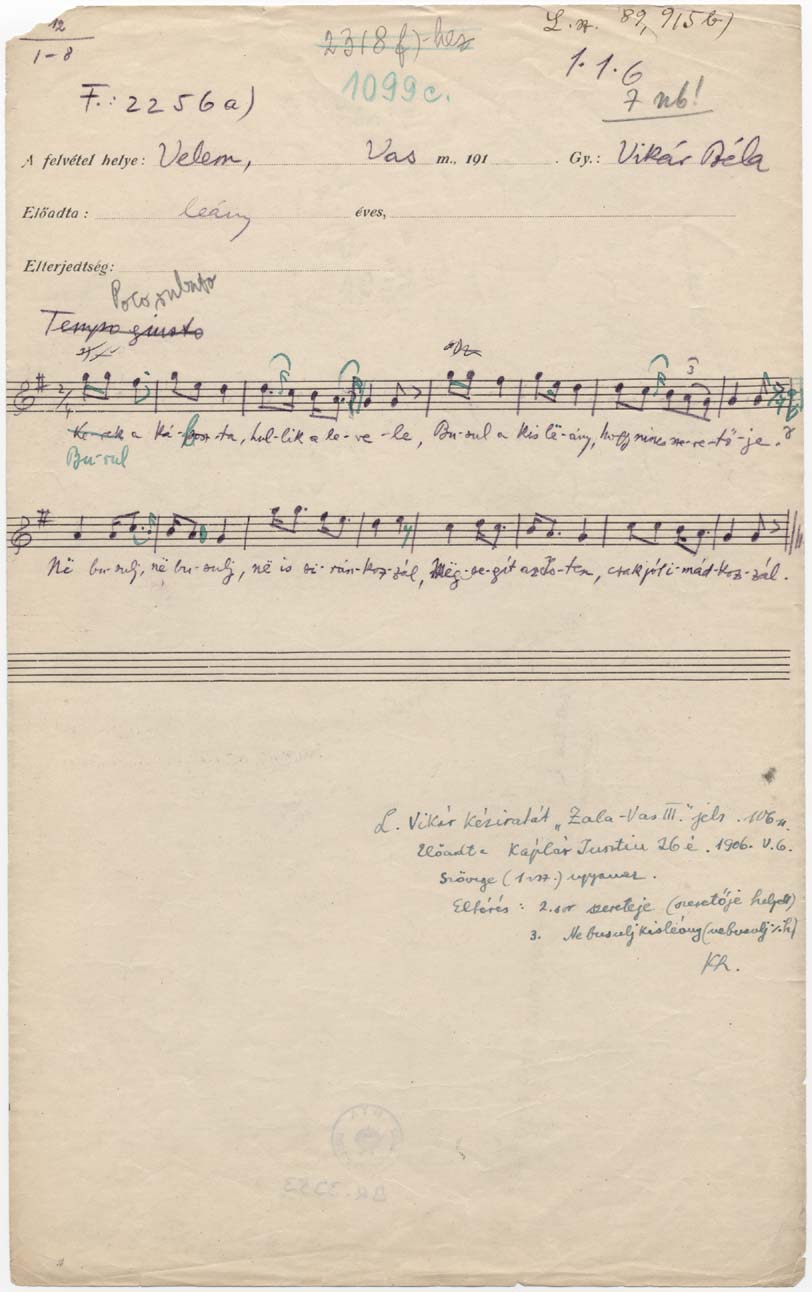 12
1-8
2318f)-hez
L. sz. 89, 915 b)
1099c.
1.1.6
7 nb!
F.: 2256a)
A felvétel helye: Velem, Vas m., 191 . Gy.: Vikár Béla
Előadta: leány éves,
Elterjedtség:
Poco rubato
Tempo giusto
2/4
3
a ká-posz-ta, hul-lik a le-ve-le, Bu-sul a kis lë-ány, hogy nincs sze-re-tő-je.
Bu-sul
Në bu-sulj, në bu-sulj, në is si-rán-koz-zál, Mëg-se-gít az Is-ten, csak jól i-mád-koz-zál.
L. Vikár kéziratát "Zala-Vas III." jelz. 106.
Előadta Káplár Jusztin 26 é. 1906. V. 6.
Szövege (1 vsz.) ugyanaz.
Eltérés: 2. sor szereteje (szeretője helyett)
3. Ne busulj kisléány (nebusulj